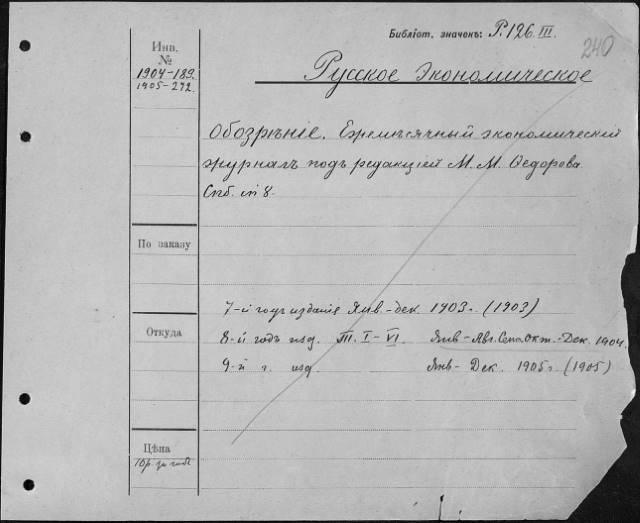 Библіот. значекъ: Р.126.III.
240
Инв.
№
1904-189.
1905-272
Русское Экономическое
Обозрѣніе. Ежемѣсячный экономическій
журналъ подъ редакціей М. М. Ѳедорова.
Спб. in 8.
По заказу
7-й годъ изданія Янв.-Дек. 1903 г. (1903)
Откуда
8-й годъ изд. III. I-VI. Янв-Авг. Сен. Окт.-Дек. 1904.
9-й г. изд. Янв-Дек. 1905 г. (1905)
Цѣна
10р. за годъ